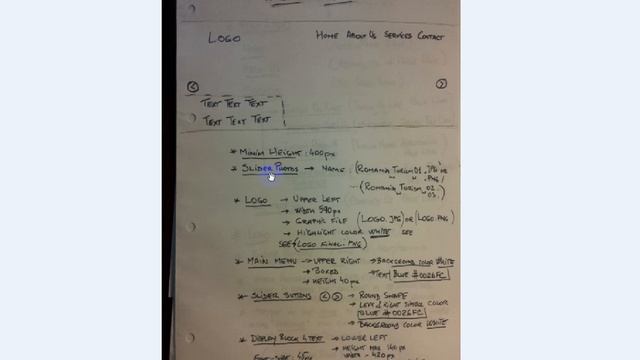 LOGO
HOME ABOUT US SERVICES CONTACT
TEXT TEXT TEXT
TEXT TEXT TEXT
* MINIM HEIGHT: 400px
* SLIDER PHOTOS → NAME: (ROMANIA_TURISM_01.JPG OR
.PNG)
(ROMANIA_TURISM_02.
03.
* LOGO → UPPER LEFT
→ WIDTH 590px
→ GRAPHIC FILE (LOGO.JPG) OR (LOGO.PNG)
→ HIGHLIGHT COLOR WHITE SEE
SEE (LOGO FINAL.PNG)
* MAIN MENU → UPPER RIGHT → BACKGROUND COLOR WHITE
→ BOXED → TEXT BLUE #0026FC
→ HEIGHT 40px
* SLIDER BUTTONS < > → ROUND SHAPE
→ LEFT & RIGHT SYMBOL COLOR
BLUE #0026FC
→ BACKGROUND COLOR WHITE
* DISPLAY BLOCK & TEXT → LOWER LEFT
→ HEIGHT MAX 140px
FONT-SIZE: 45px WIDTH - 420px